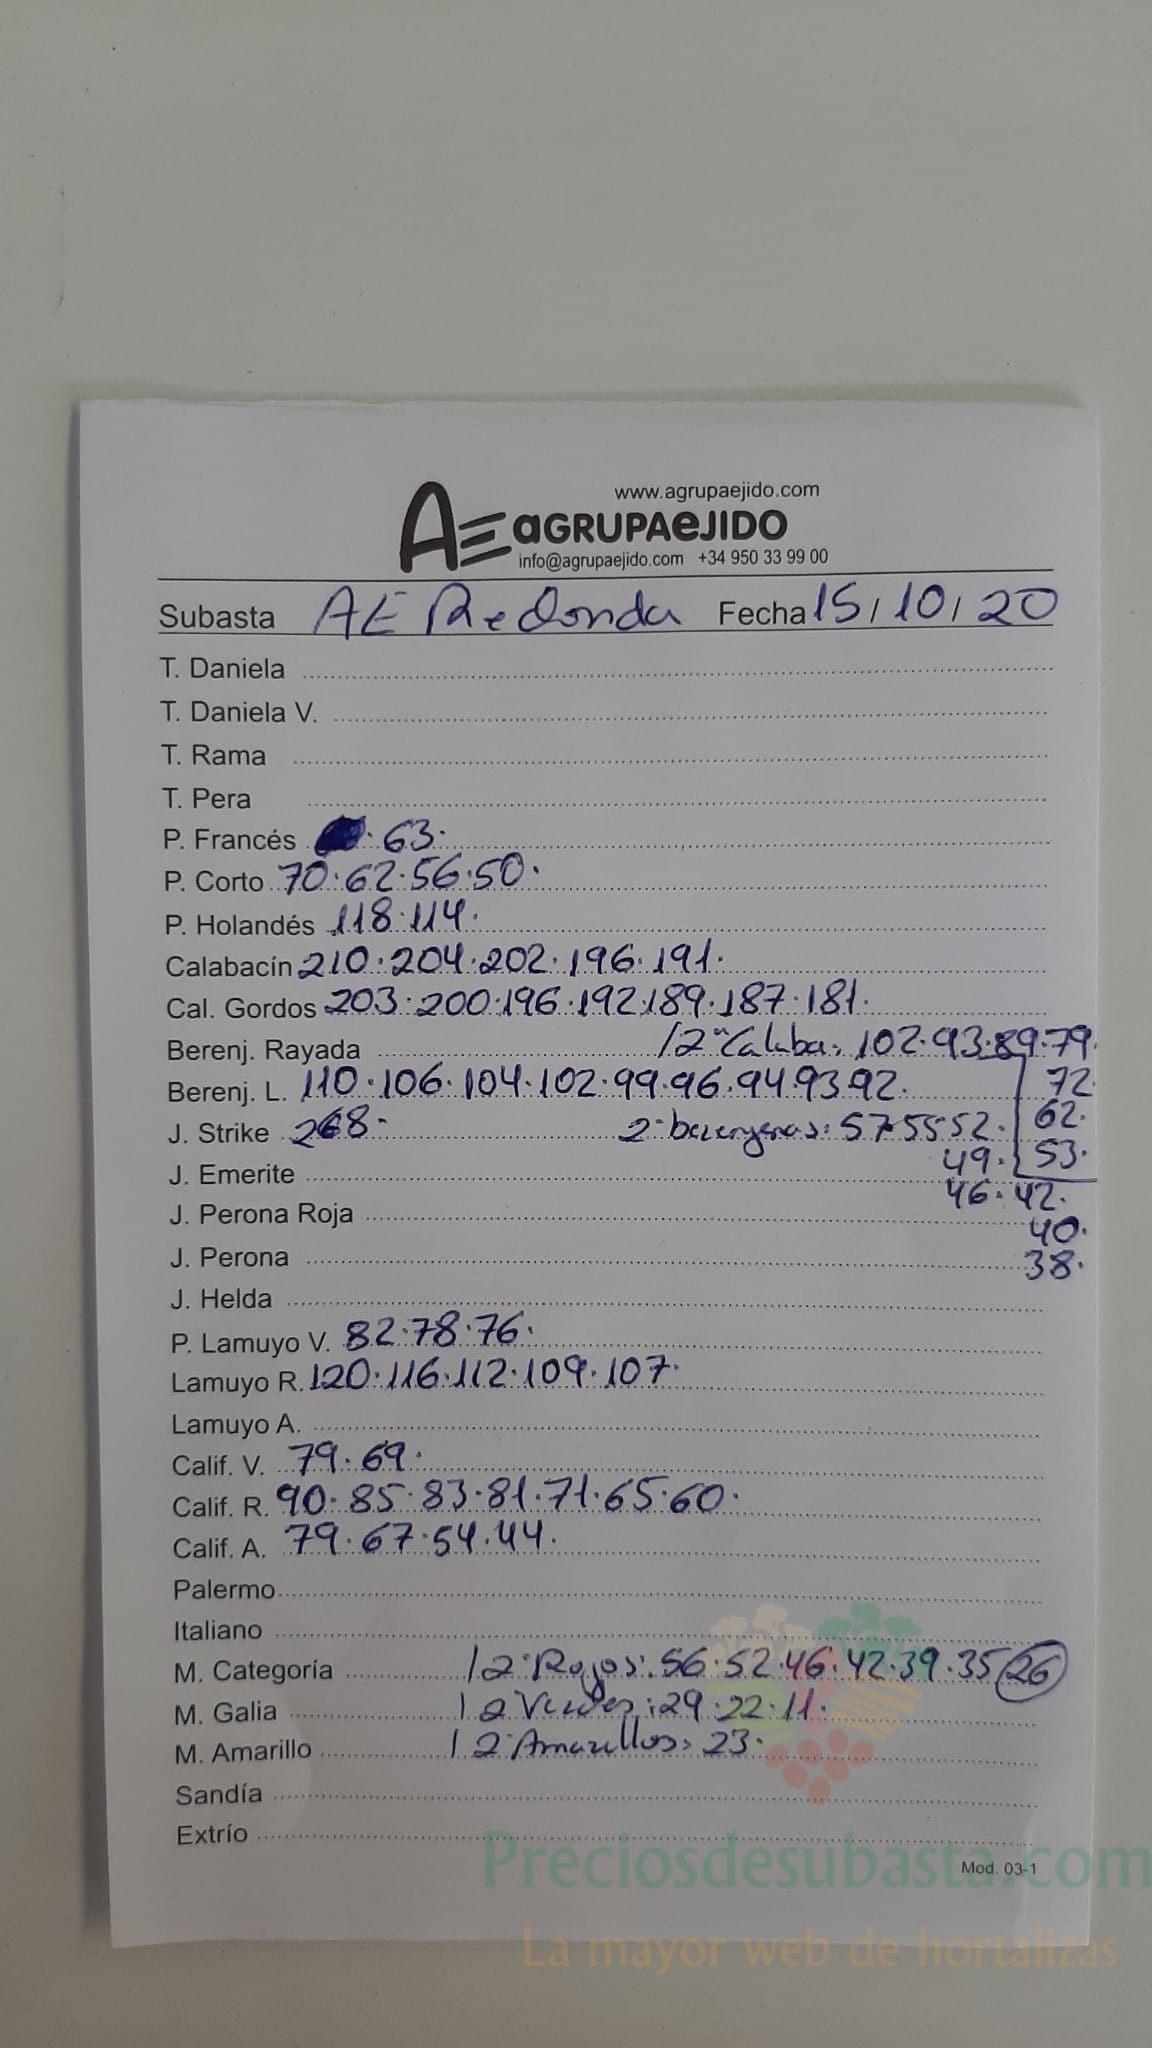 www.agrupaejido.com
AE aGRUPAeJIDO
info@agrupaejido.com +34 950 33 99 00
Subasta AE Redonda Fecha 15/10/20
T. Daniela
T. Daniela V.
T. Rama
T. Pera
P. Francés 63.
P. Corto 70.62.56.50.
P. Holandés 118.114.
Calabacín 210.204.202.196.191.
Cal. Gordos 203.200.196.192.189.187.181.
Berenj. Rayada /2ª Calaba: 102.93.89.79.
Berenj. L. 110.106.104.102.99.96.94.93.92. 72.
J. Strike 268. 2ª berenjenas: 57.55.52. 62.
49. 53.
J. Emerite 46.42.
J. Perona Roja 40.
J. Perona 38.
J. Helda
P. Lamuyo V. 82.78.76.
Lamuyo R. 120.116.112.109.107.
Lamuyo A.
Calif. V. 79.69.
Calif. R. 90.85.83.81.71.65.60.
Calif. A. 79.67.54.44.
Palermo
Italiano
M. Categoría / 2ª Rojos: 56.52.46.42.39.35 26
M. Galia / 2 Verdes: 29.22.11.
M. Amarillo / 2ª Amarillos: 23.
Sandía
Extrío
Mod. 03-1
Preciosdesubasta.com
La mayor web de hortalizas